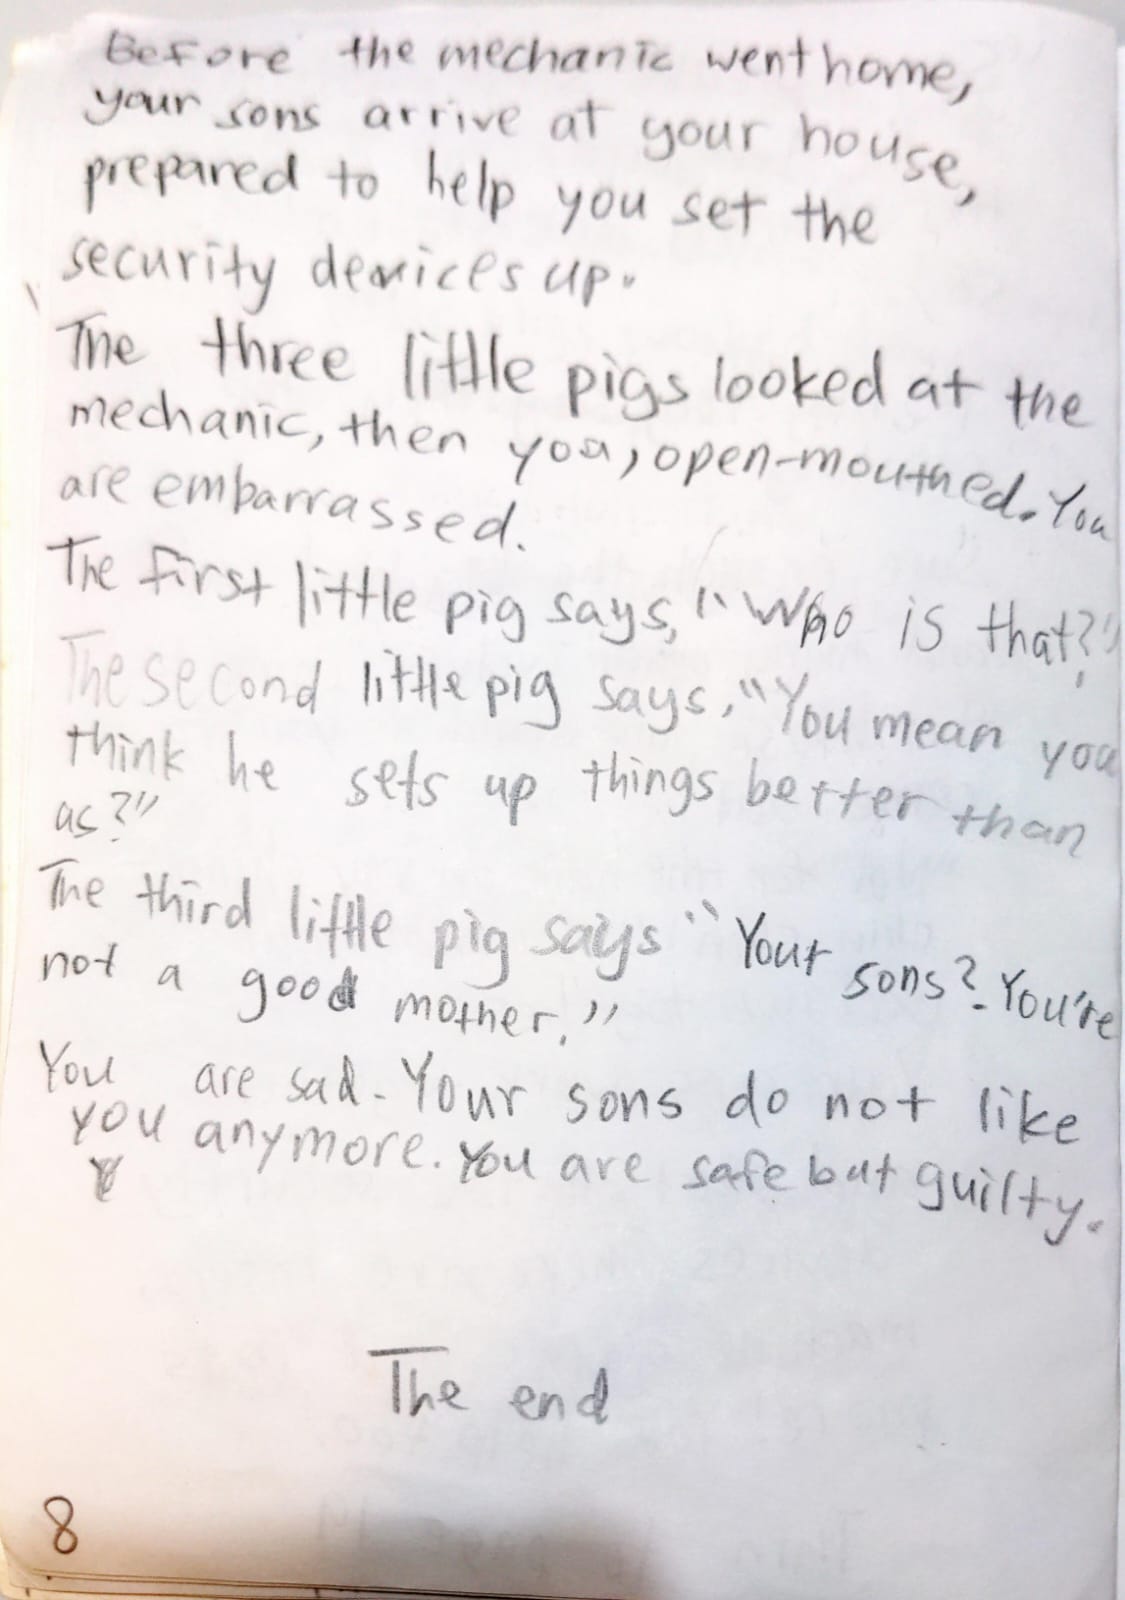 Before the mechanic went home,
your sons arrive at your house,
prepared to help you set the
security devices up.
The three little pigs looked at the
mechanic, then you, open-mouthed. You
are embarrassed.
The first little pig says, "Who is that?"
The second little pig says, "You mean you
think he sets up things better than
us?"
The third little pig says "Your sons? You're
not a good mother."
You are sad. Your sons do not like
you anymore. You are safe but guilty.
The end
8